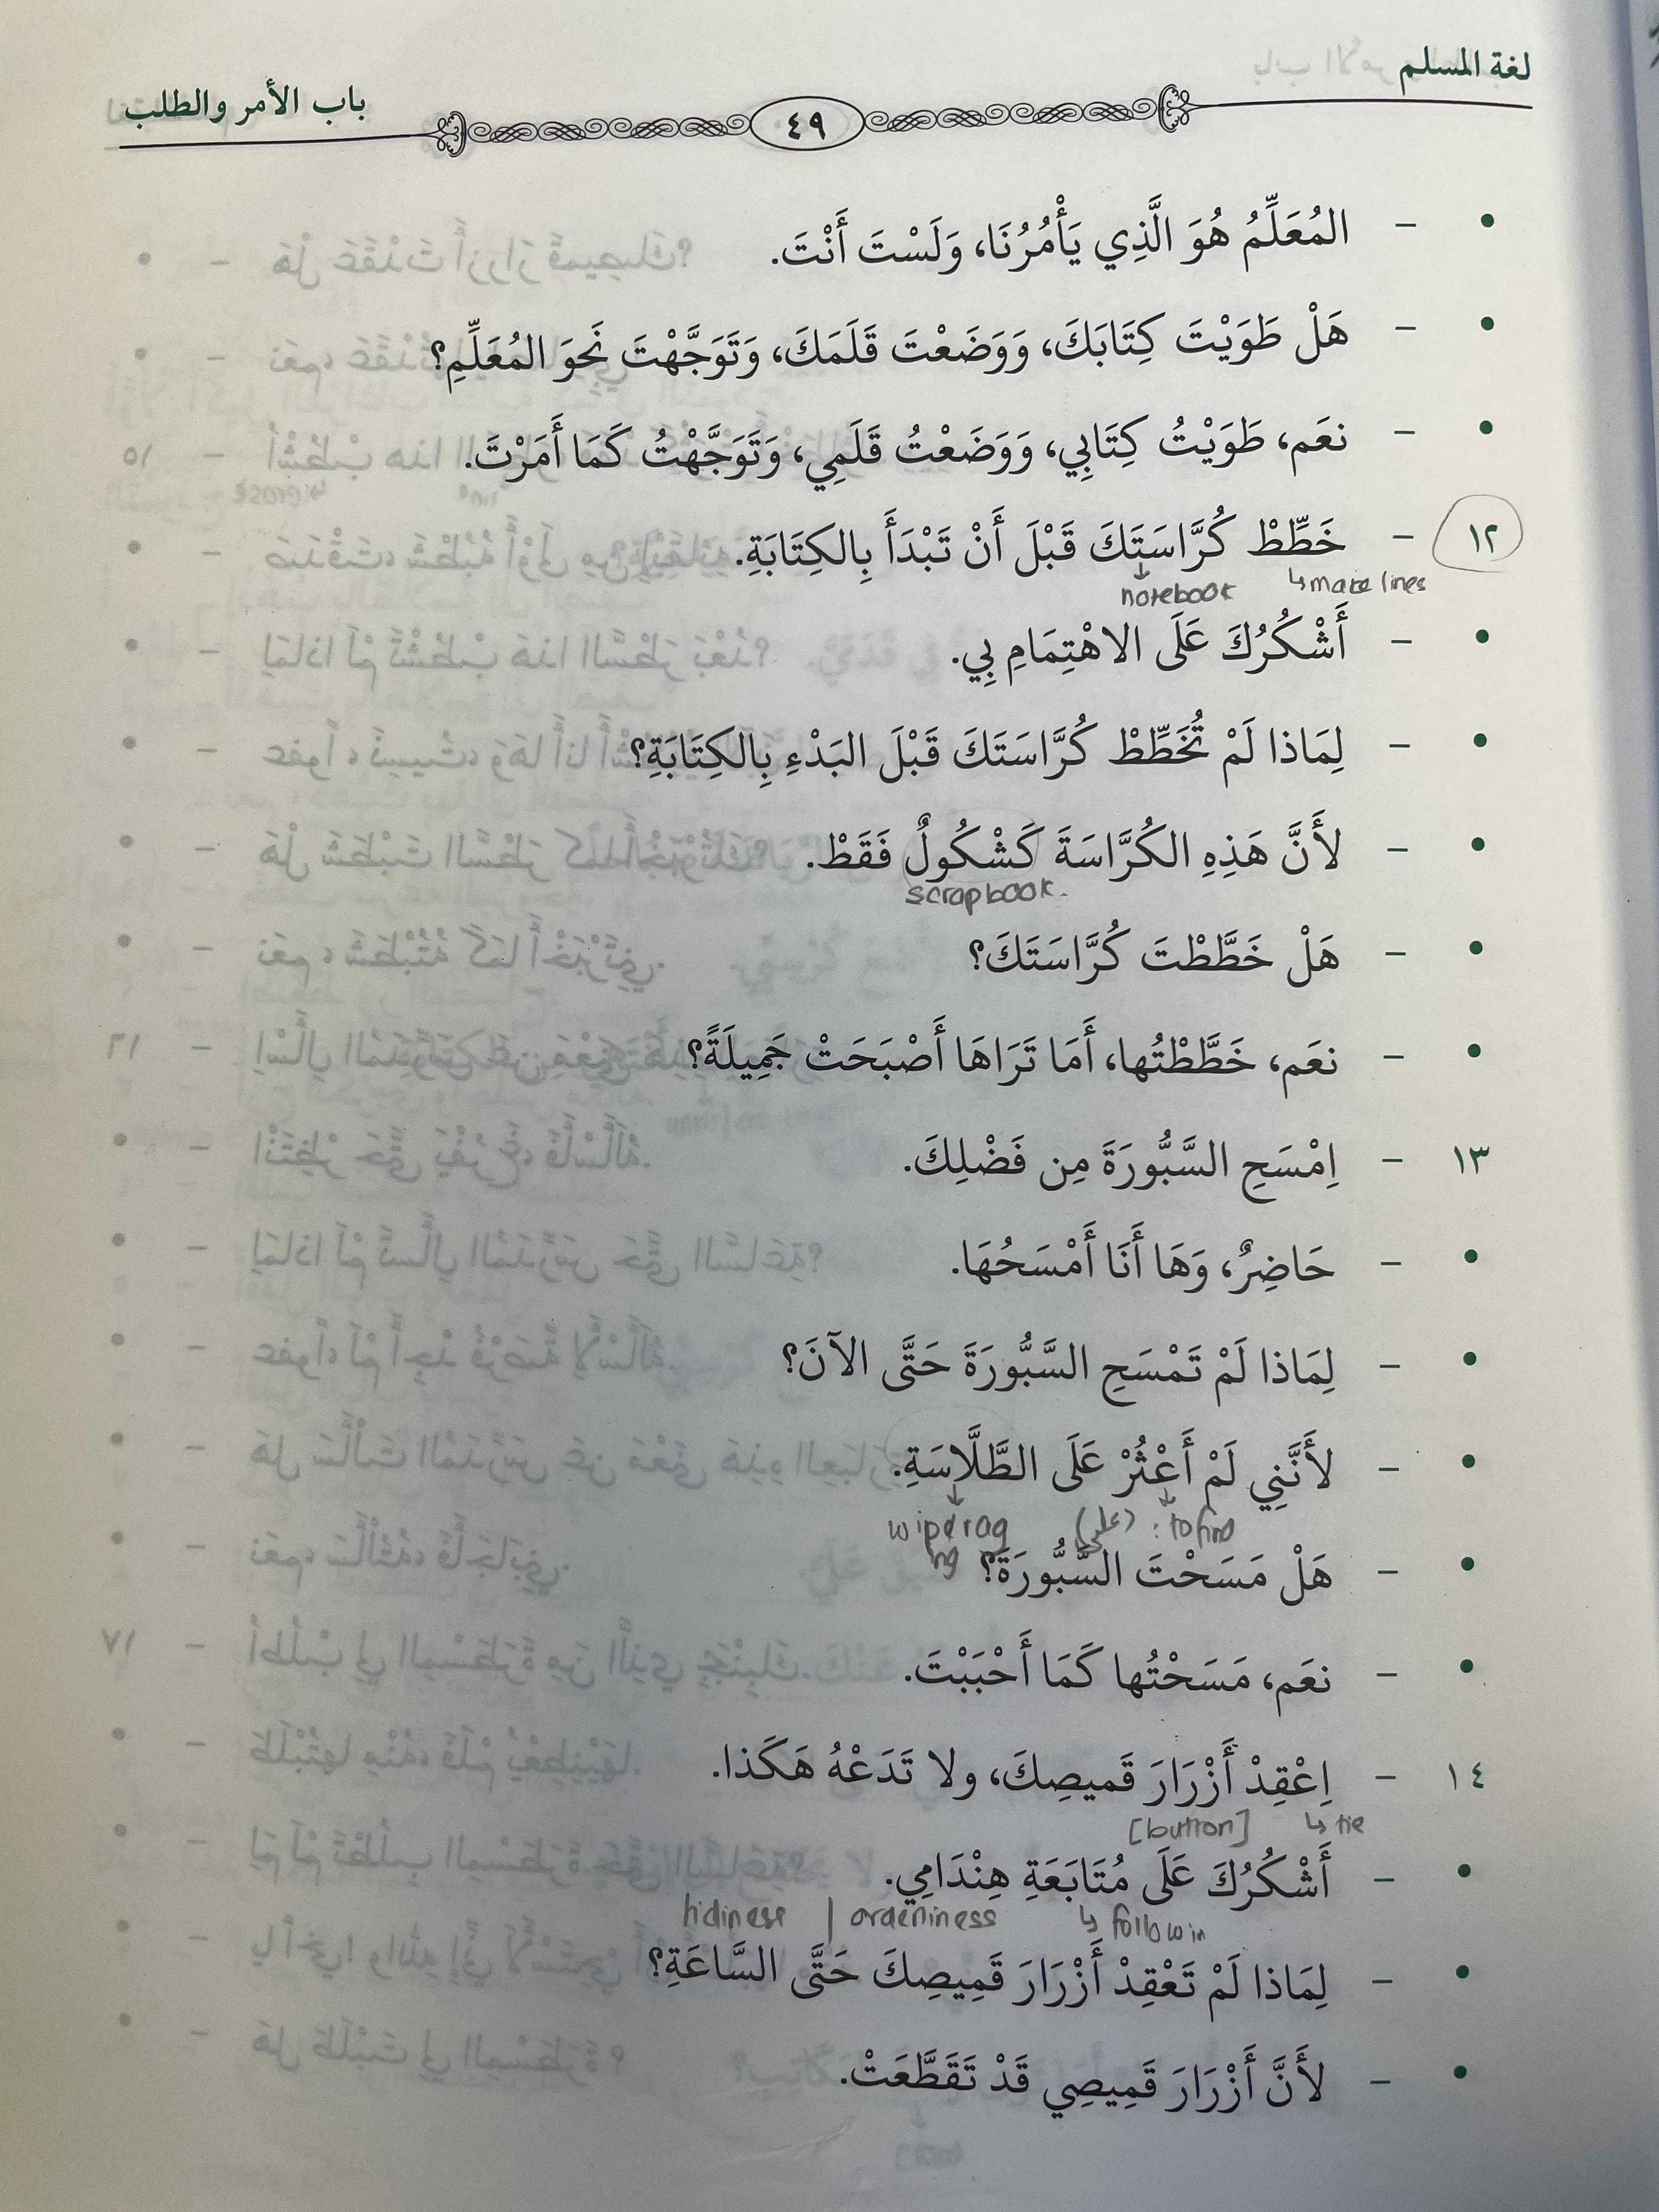 لغة المسلم
٤٩
باب الأمر والطلب
• - المُعَلِّمُ هُوَ الَّذِي يَأْمُرُنَا، وَلَسْتَ أَنْتَ.
• - هَلْ طَوَيْتَ كِتَابَكَ، وَوَضَعْتَ قَلَمَكَ، وَتَوَجَّهْتَ نَحوَ المُعَلِّمِ؟
• - نعَم، طَوَيْتُ كِتَابِي، وَوَضَعْتُ قَلَمِي، وَتَوَجَّهْتُ كَمَا أَمَرْتَ.
١٢ - خَطِّطْ كُرَّاسَتَكَ قَبْلَ أَنْ تَبْدَأَ بِالكِتَابَةِ.
notebook ↳ make lines
• - أَشْكُرُكَ عَلَى الاهْتِمَامِ بِي.
• - لِمَاذا لَمْ تُخَطِّطْ كُرَّاسَتَكَ قَبْلَ البَدْءِ بِالكِتَابَةِ؟
• - لأَنَّ هَذِهِ الكُرَّاسَةَ كَشْكُولٌ فَقَطْ.
scrapbook.
• - هَلْ خَطَّطْتَ كُرَّاسَتَكَ؟
• - نعَم، خَطَّطْتُها، أَمَا تَرَاهَا أَصْبَحَتْ جَمِيلَةً؟
١٣ - اِمْسَحِ السَّبُّورَةَ مِن فَضْلِكَ.
• - حَاضِرٌ، وَهَا أَنَا أَمْسَحُهَا.
• - لِمَاذا لَمْ تَمْسَحِ السَّبُّورَةَ حَتَّى الآنَ؟
• - لأَنَّنِي لَمْ أَعْثُرْ عَلَى الطَّلَّاسَةِ.
(على) : to find
• - هَلْ مَسَحْتَ السَّبُّورَةَ؟
• - نعَم، مَسَحْتُها كَمَا أَحْبَبْتَ.
١٤ - اِعْقِدْ أَزْرَارَ قَميصِكَ، ولا تَدَعْهُ هَكَذا.
[button] ↳ tie
• - أَشْكُرُكَ عَلَى مُتَابَعَةِ هِنْدَامِي.
tidiness | ↳ followin
• - لِمَاذا لَمْ تَعْقِدْ أَزْرَارَ قَمِيصِكَ حَتَّى السَّاعَةِ؟
• - لأَنَّ أَزْرَارَ قَمِيصِي قَدْ تَقَطَّعَتْ.